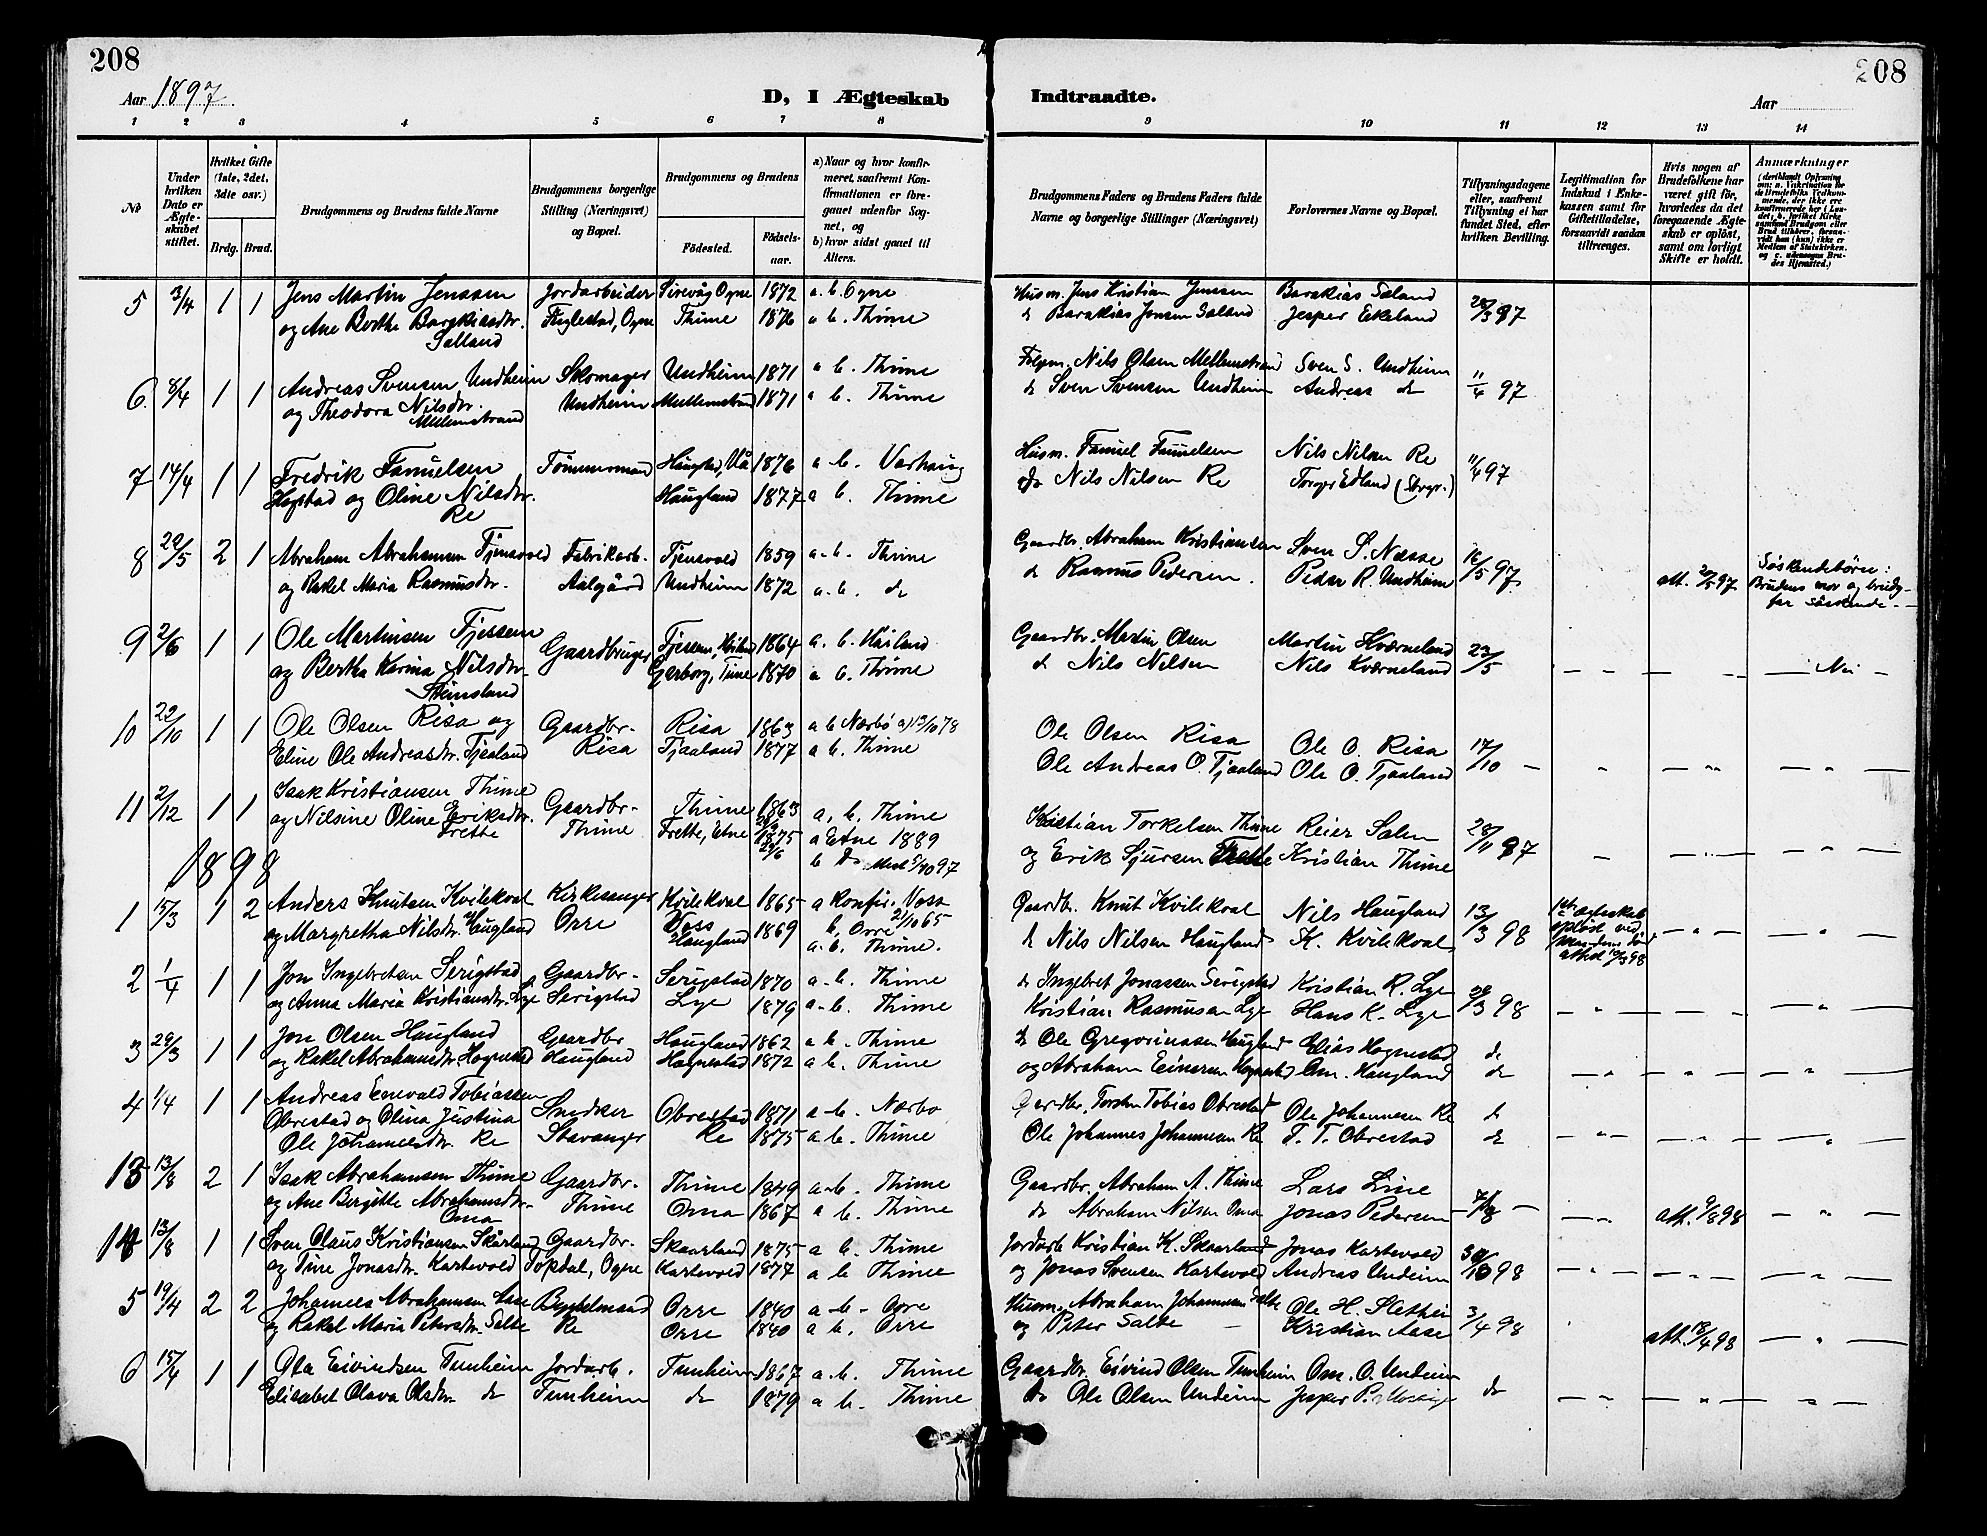 208
208
Aar 1897
D, I Ægteskab Indtraadte.
Aar
1 2 3 4 5 6 7 8 9 10 11 12 13 14
No
Under hvilken Dato er Ægteskabet stiftet.
Hvilket Gifte (1ste, 2det, 3die osv.)
Brdg. Brud.
Brudgommens og Brudens fulde Navne
Brudgommens borgerlige Stilling (Næringsvei) og Bopæl.
Brudgommens og Brudens
Födested.
Födselsaar.
a) Naar og hvor konfirmeret, saafremt Konfirmationen er foregaaet udenfor Sognet, og
b) hvor sidst gaaet til Alters.
Brudgommens Faders og Brudens Faders fulde Navne og borgerlige Stillinger (Næringsvei)
Forlovernes Navne og Bopæl.
Tillysningsdagene eller, saafremt Tillysning ei har fundet Sted, efter hvilken Bevilling.
Legitimation for Indskud i Enkekassen samt for Giftetilladelse, forsaavidt saadan tiltrænges.
Hvis nogen af Brudefolkene har været gift för, hvorledes da det foregaaende Ægteskab er oplöst, samt om lovligt Skifte er holdt.
Anmærkninger
5 3/4 1 1 Jens Martin Jenssen Jordarbeider Sirevåg Ogne 1872 a. b. Ogne Husm. Jens Kristian Jenssen Barakias Saland 28/3 97
og Ane Berthe Barakiasdtr. Salland Fuglestad, Ogne Thime 1876 a b. Thime d. Barakias Jonsen Saland Jesper Eikeland
6. 8/4 1 1 Andreas Svensen Undheim Skomager Undheim 1871 a b. Thime Nils Olsen Mellemstrand Sven S. Undheim 11/4 97
og Theodora Nilsdtr. Mellemstrand Undheim Mellemstrand 1871 a b. Thime d. Sven Svensen Undheim Andreas do
7 14/4 1 1 Fredrik Famuelsen Tömmermand 1876 a b. Varhaug Husm. Famuel Nils Nilsen Re 11/4 97
Hagstad og Oline Nilsdtr. Re Haugland 1877 a b. Thime do Nils Nilsen Re Torger Edland
8 29/5 2 1 Abraham Abrahamsen Tjensvold Fabrikarb. Tjensvold 1859 a. b. Thime Gaardbr. Abraham Kristiansen Sven S. Næsse 16/5 97
og Rakel Maria Rasmusdtr. Aalgård Undheim 1872 a. b. do d. Rasmus Pedersen. Peder R. Undheim att. 20/5 97 Söskendebörn: Brudens mor og brudg. far söskende.
9 2/6 1 1 Ole Martinsen Tjessem Gaardbruger 1864 a. b. Gaardbr. Martin Olsen Martin Kværneland 23/5
og Bertha Karina Nilsdtr. Stensland Gjerborg, Time 1870 a b. Thime d. Nils Nilsen Nils Kværneland Nei
10 22/10 1 1 Ole Olsen Risa og Gaardbr. Risa 1863 a b Nærbö a) 13/10 78 Ole Olsen Risa Ole O. Risa 17/10
Eline Ole Andreasdtr. Tjaaland Risa Tjaaland 1877 a b. Thime Ole Andreas O. Tjaaland Ole O. Tjaaland
11 2/12 1 1 Isak Kristiansen Thime Gaardbr. Thime 1863 a, b, Thime Kristian Torkelsen Thime Reier Salen 28/11 97
og Nilsine Oline Eriksdtr. Frette Thime Frette, Etne 1875 a Etne 1889 og Erik Sjursen Frette Kristian Thime
1898
1 15/3 1 2 Anders Knutsen Kvilekval Kirkesanger Kvilekval Voss 1865 a Konfir. Voss b, Orre Gardbr. Knut Kvilekval Nils Haugland 13/3 98
og Margretha Nilsdtr. Haugland Orre Haugland 1869 a. b. Thime. d. Nils Nilsen Haugland K. Kvilekval
2 1/4 1 1 Jon Ingebretsen Serigstad Gaardbr. Serigstad 1870 a. b. Thime d. Ingebret Jonassen Serigstad Kristian R. Lye 28/3 98
og Anna Maria Kristiansdtr. Lye Serigstad Lye 1879 a. b. Thime Kristian Rasmusen Lye Hans K. Lye
3 29/3 1 1 Jon Olsen Haugland Gaardbr Haugland 1862 a b. Thime d. Ole Gregoriussen Haugland Elias Hognestad do
og Rakel Abrahamsdtr. Hognestad Haugland Hognestad 1872 a b. Thime og Abraham Einersen Hognestad Om. Haugland do
4 1/4 1 1 Andreas Enevald Tobiassen Snedker Obrestad 1871 a b. Nærbo Gardbr. Torsten Tobias Obrestad Ole Johannesen Re do
Obrestad og Olina Justina Ole Johannesdtr. Re Stavanger Re 1875 a b. Thime Ole Johannes Johannesen Re T. T. Obrestad do
13 13/8 2 1 Isak Abrahamsen Thime Gaardbr. Thime 1849 a. b. Thime Gaardbr. Abraham A. Thime Lars Line 7/8
og Ane Bergitte Abrahamsdtr. Oma Thime Oma 1867 a b. Thime do Abraham Nilsen Oma Jonas Pedersen att. 9/8 98
14 13/8 1 1 Sven Olaus Kristiansen Skårland Gaardbr. Skaarland 1875 a b. Thime Jordarb Kristian K. Skaarland Jonas Kartevold 30/10 98
og Tine Jonasdtr. Kartevold Töpdal, Ogne Kartevold 1877 a b. Thime og Jonas Svensen Kartevold Andreas Undeim
5 19/4 2 2 Johannes Abrahamsen Aase Bygdelmand Orre 1840 a. b. Orre Husm. Abraham Johannesen Ole H. Slethei 3/4 98
og Rakel Maria Petersdtr. Salte Re Orre 1840 a b. Orre og Peter Salte Kristian Aase att. 18/4 98
6 15/4 1 1 Ola Eivindsen Tunheim Jordarb. Tunheim 1867 a. b. Thime Gaardbr. Eivind Olsen Tunheim Om. O. Undeim do
Elisabet Olava Olsdtr. do Tunheim do 1879 a b. Thime do Ole Olsen Undeim Jesper P.